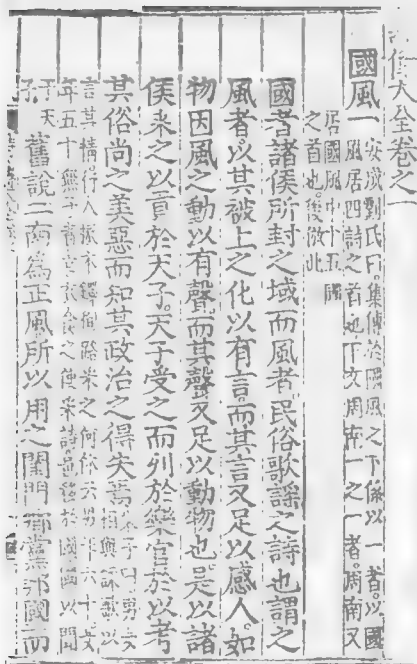 詩傳大全卷之一
國風一
安成劉氏曰集傳於國風之下係以一者以國
風居四詩之首也下文周南一之一者周南又
居國風中十五國
之首也後倣此
國者諸侯所封之域而風者民俗歌謠之詩也謂之
風者以其被上之化以有言而其言又足以感人如
物因風之動以有聲而其聲又足以動物也是以諸
侯采之以貢於天子天子受之而列於樂官於以考
其俗尚之美惡而知其政治之得失焉
朱子曰男女
相與詠歌以
言其情行人振木鐸徇路采之何休云男年六十女
年五十無子者官衣食之使采詩邑移於國國以聞
于天
子
舊說二南為正風所以用之閨門鄉黨邦國而